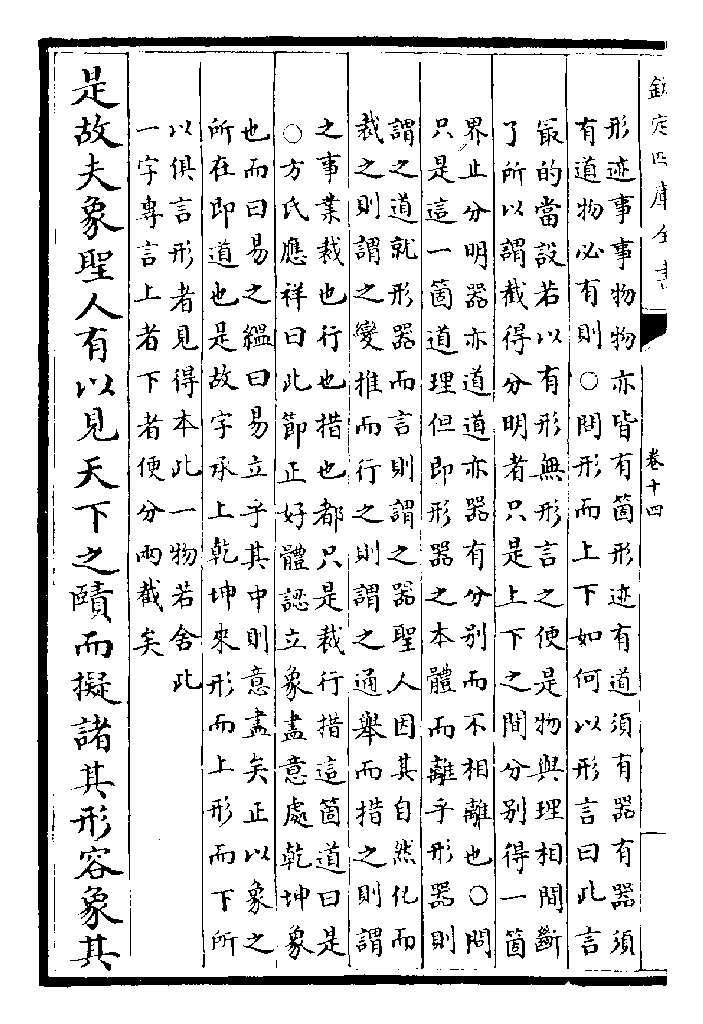 欽定四庫全書
卷十四
形迹事事物物亦皆有箇形迹有道須有器有器須
有道物必有則○問形而上下如何以形言曰此言
最的當設若以有形無形言之便是物與理相間斷
了所以謂截得分明者只是上下之間分别得一箇
界止分明器亦道道亦器有分别而不相離也○問
只是這一箇道理但即形器之本體而離乎形器則
謂之道就形器而言則謂之器聖人因其自然化而
裁之則謂之變推而行之則謂之通舉而措之則謂
之事業裁也行也措也都只是裁行措這箇道曰是
○方氏應祥曰此節正好體認立象盡意處乾坤象
也而曰易之緼曰易立乎其中則意盡矣正以象之
所在即道也是故字承上乾坤來形而上形而下所
以俱言形者見得本此一物若舍此
一字專言上者下者便分兩截矣
是故夫象聖人有以見天下之賾而擬諸其形容象其